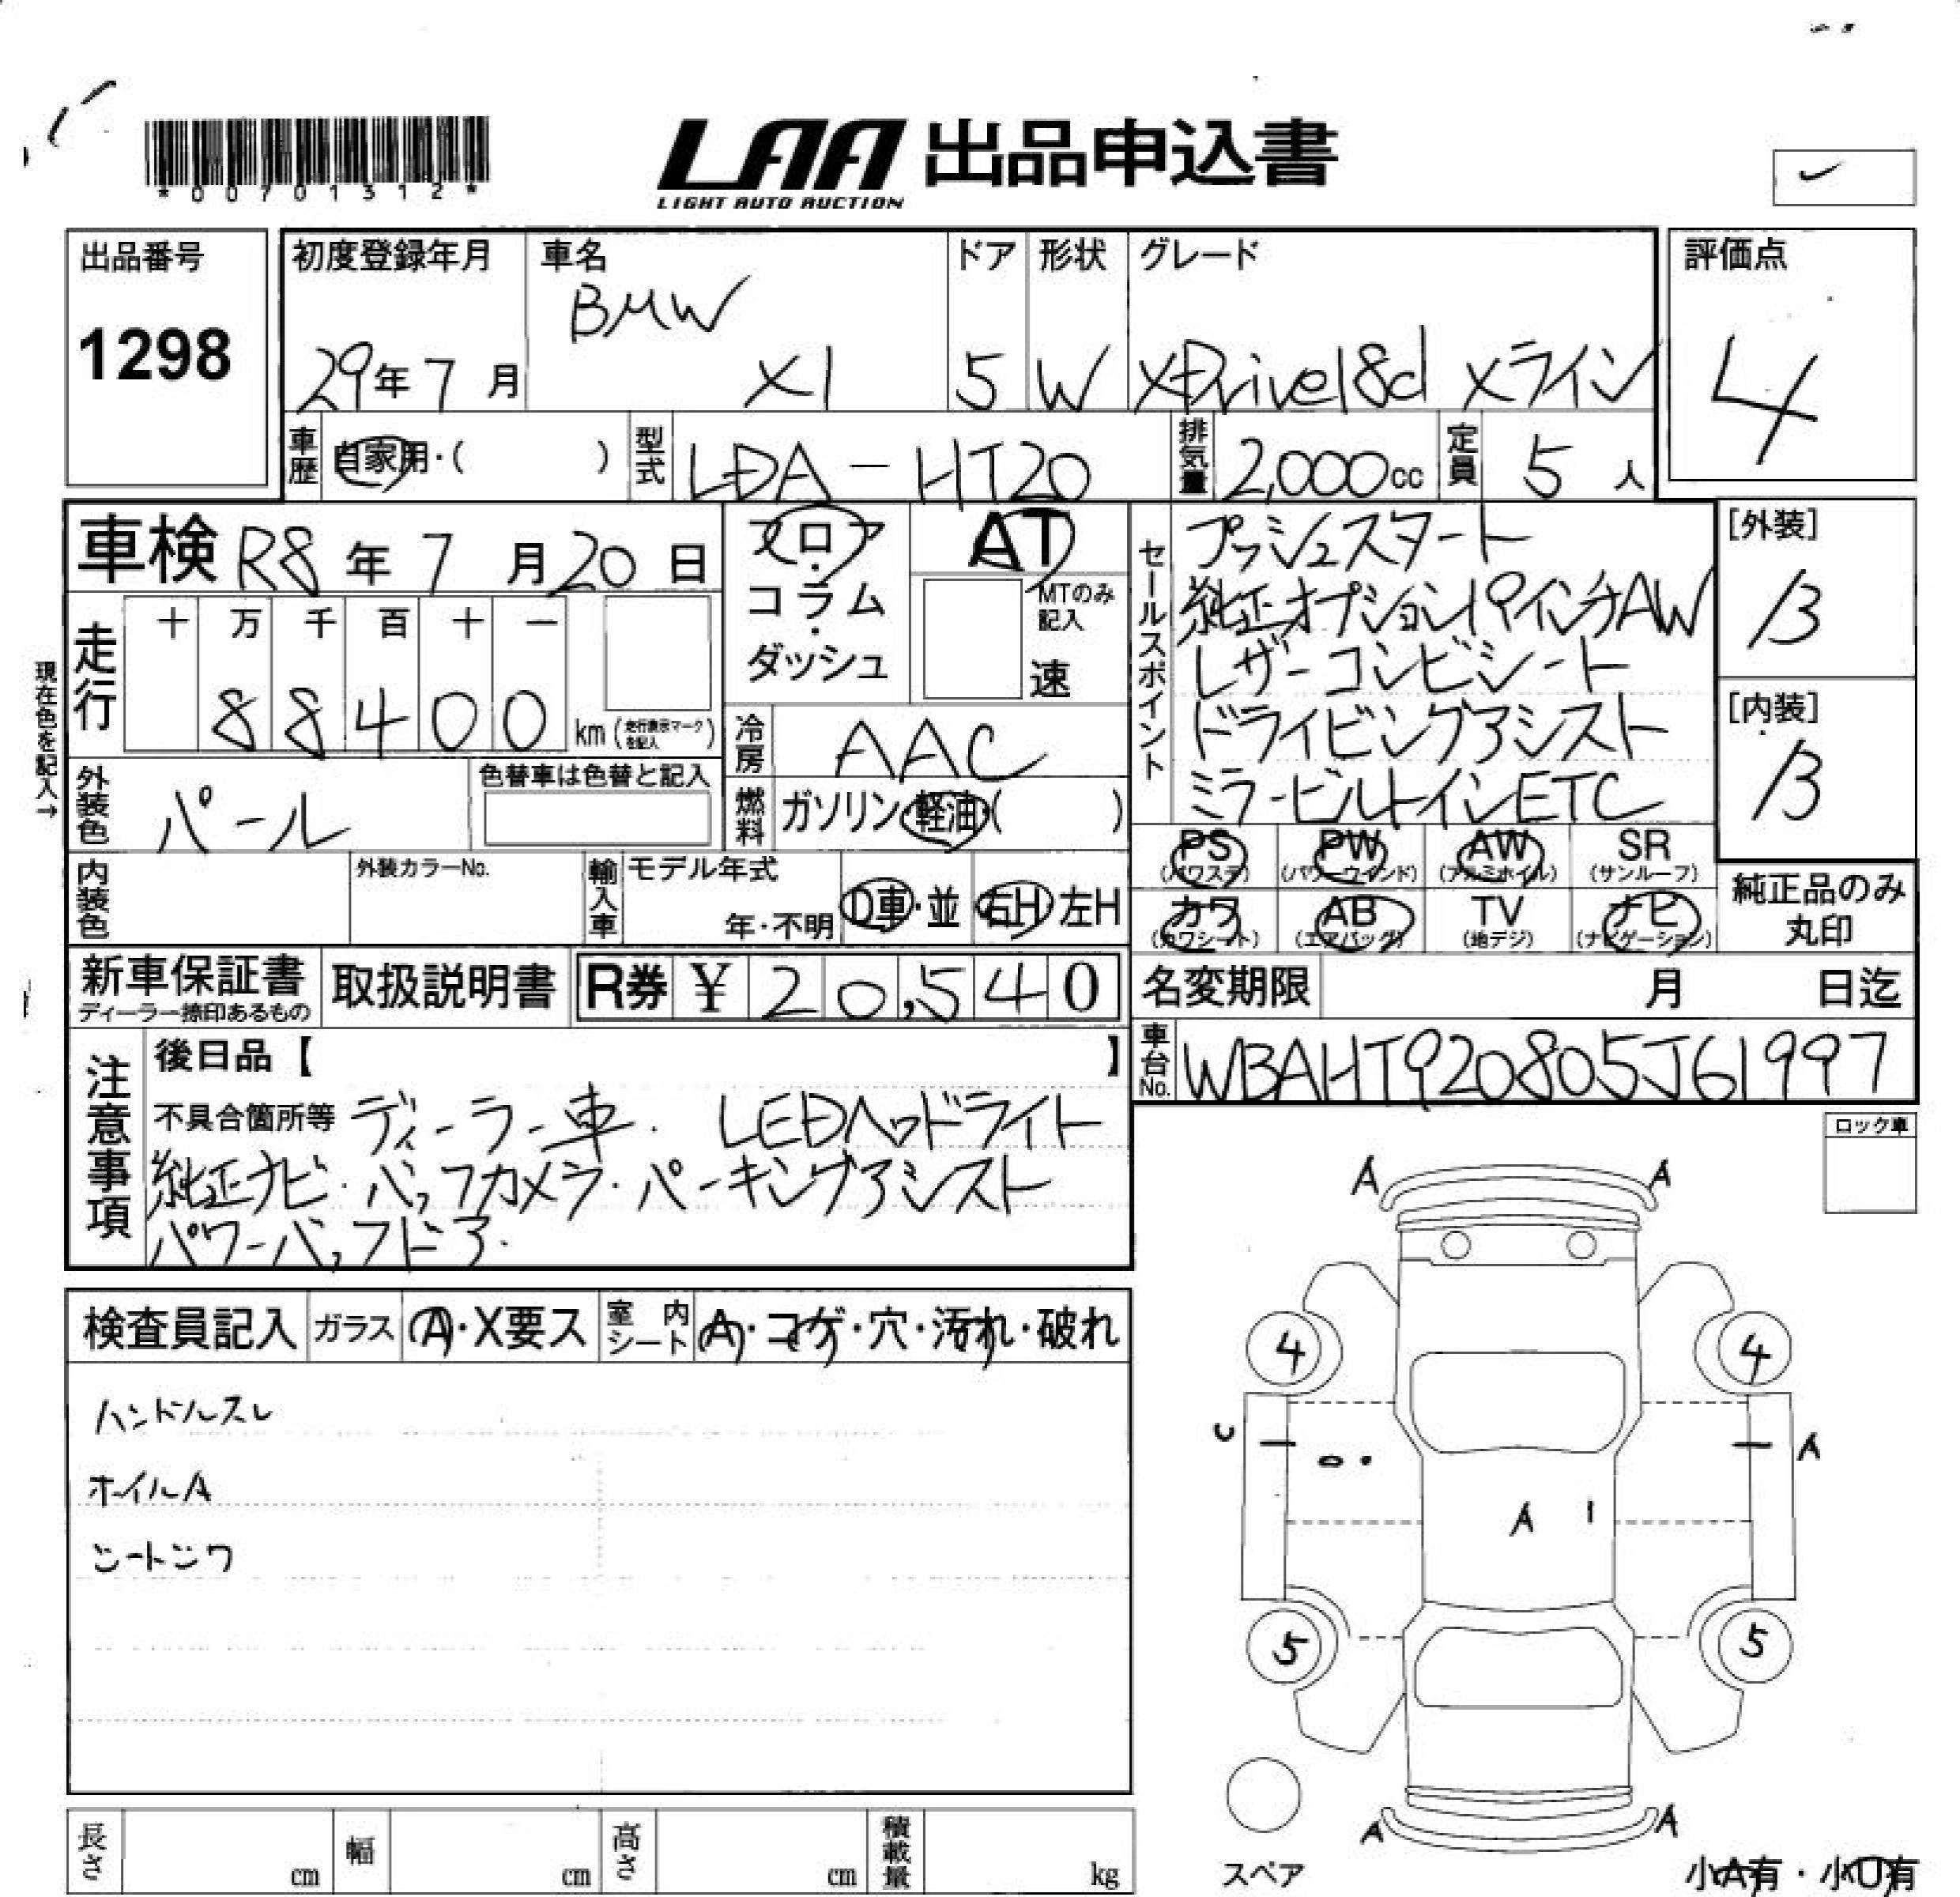 *00701312*
LAA 出品申込書
LIGHT AUTO AUCTION
出品番号
1298
初度登録年月
29年7月
車名
BMW
X1
ドア
5
形状
W
グレード
XDrive18d Xライン
評価点
4
車歴
自家用・( )
型式
LDA-HT20
排気量
2,000cc
定員
5人
車検 R8年7月20日
フロア・コラム・ダッシュ
AT
MTのみ記入
速
セールスポイント
プッシュスタート
純正オプション19インチAW
レザーコンビシート
ドライビングアシスト
ミラービルトインETC
[外装]
B
[内装]
B
現在色を記入→
走行
十 万 千 百 十 一
88400
km(走行表示マークを記入)
冷房
AAC
外装色
パール
色替車は色替と記入
燃料
ガソリン・軽油・( )
PS (パワステ)
PW (パワーウインド)
AW (アルミホイル)
SR (サンルーフ)
カワ (カワシート)
AB (エアバッグ)
TV (地デジ)
ナビ (ナビゲーション)
純正品のみ丸印
内装色
外装カラーNo.
輸入車
モデル年式
年・不明
D車・並
右H 左H
新車保証書
ディーラー捺印あるもの
取扱説明書
R券 ¥ 20,540
名変期限 月 日迄
車台No.
WBAHT920805J61997
注意事項
後日品【 】
不具合箇所等 ディーラー車. LEDヘッドライト
純正ナビ・バックカメラ・パーキングアシスト
パワーバックドア.
ロック車
検査員記入
ガラス
A・X要ス
室内シート
A・コゲ・穴・汚れ・破れ
ハンドルスレ
ホイルA
シートシワ
A A
4 4
A
A
5 5
A A
スペア
長さ cm
幅 cm
高さ cm
積載量 kg
小A有・小U有